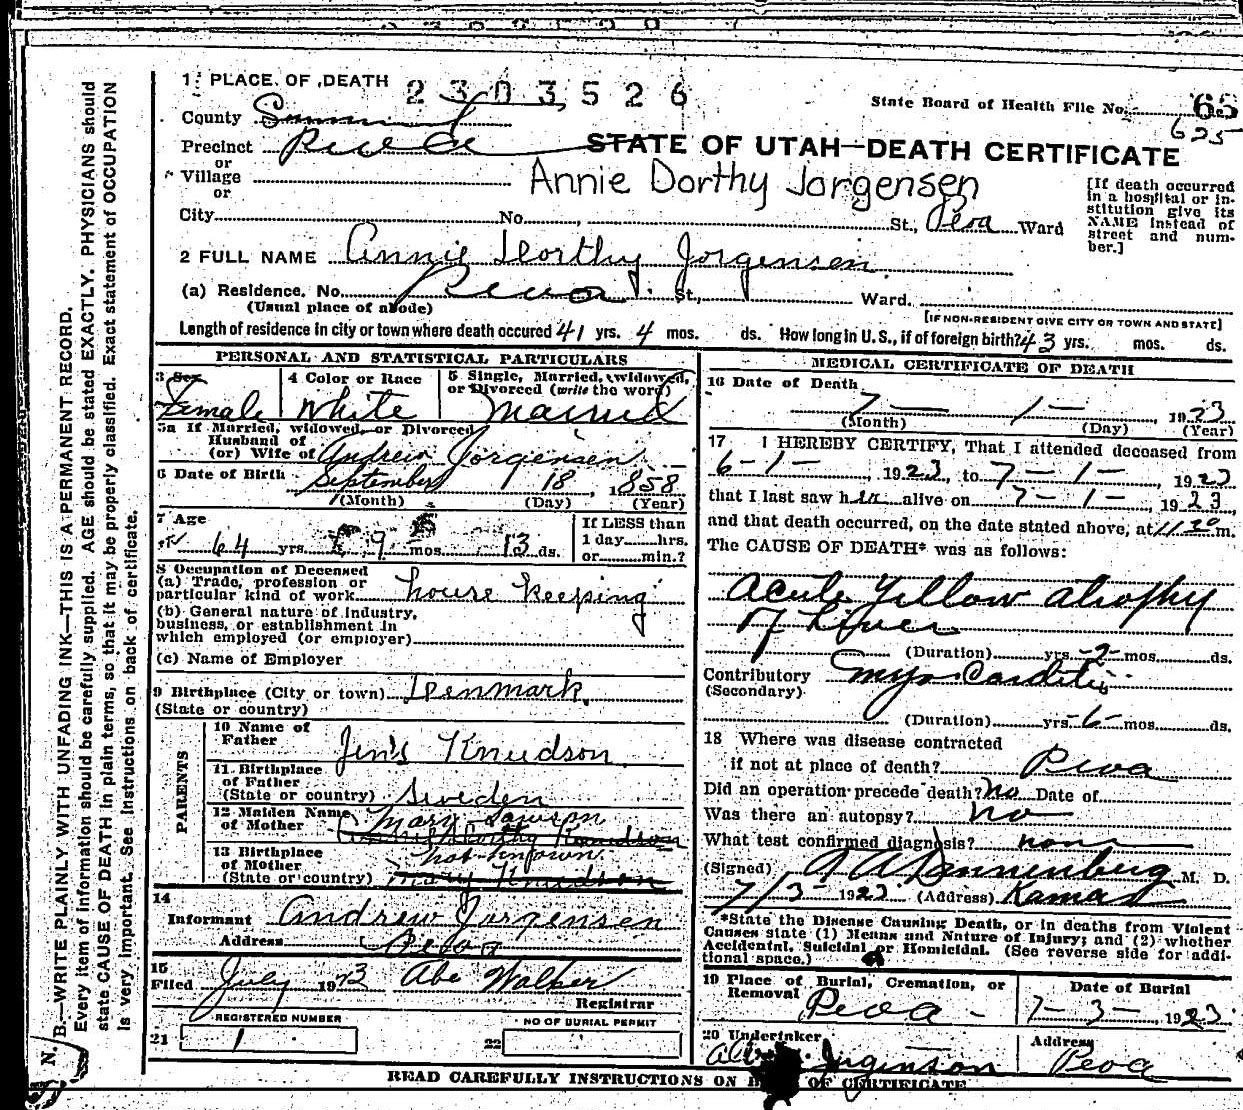 1 PLACE OF DEATH 2303526
State Board of Health File No. 65
625
County Summit
Precinct Peoa
STATE OF UTAH—DEATH CERTIFICATE
or
Village
Annie Dorthy Jorgensen
or
City No. St., Peoa Ward
[If death occurred in a hospital or in-
stitution give its
NAME instead of
street and num-
ber.]
2 FULL NAME Annie Dorthy Jorgensen
(a) Residence. No. Peoa St., Ward.
(Usual place of abode)
[IF NON-RESIDENT GIVE CITY OR TOWN AND STATE]
Length of residence in city or town where death occured 41 yrs. 4 mos. ds. How long in U.S., if of foreign birth? 43 yrs. mos. ds.
PERSONAL AND STATISTICAL PARTICULARS
3 Sex
Female
4 Color or Race
White
5 Single, Married, Widowed, or Divorced (write the word)
Married
5a If Married, widowed, or Divorced
Husband of
(or) Wife of Andrew Jorgensen
6 Date of Birth September 18, 1858
(Month) (Day) (Year)
7 Age
64 yrs. 9 mos. 13 ds.
If LESS than
1 day hrs.
or min.?
8 Occupation of Deceased
(a) Trade, profession or
particular kind of work house keeping
(b) General nature of industry,
business, or establishment in
which employed (or employer)
(c) Name of Employer
9 Birthplace (City or town) Denmark
(State or country)
PARENTS
10 Name of
Father Jens Knudson
11 Birthplace
of Father
(State or country) Sweden
12 Maiden Name
of Mother Mary
Dorthy Knudson
13 Birthplace
of Mother not known
(State or country) Mary Knudson
14
Informant Andrew Jorgensen
Address Peoa
15
Filed July 1923 Abe Walker
Registrar
REGISTERED NUMBER
21 1
NO OF BURIAL PERMIT
22
MEDICAL CERTIFICATE OF DEATH
16 Date of Death
7 — 1 —, 1923
(Month) (Day) (Year)
17 I HEREBY CERTIFY, That I attended deceased from
6-1-, 1923, to 7-1-, 1923
that I last saw her alive on 7-1-, 1923,
and that death occurred, on the date stated above, at 11.30 m.
The CAUSE OF DEATH* was as follows:
Acute Yellow atrophy
of Liver
(Duration) yrs. -2- mos. ds.
Contributory Myo Carditis
(Secondary)
(Duration) yrs. -6- mos. ds.
18 Where was disease contracted
if not at place of death? Peoa
Did an operation precede death? No Date of
Was there an autopsy? No
What test confirmed diagnosis? none
(Signed) A A Dannenberg M. D.
7/3- 1923 (Address) Kamas
*State the Disease Causing Death, or in deaths from Violent
Causes state (1) Means and Nature of Injury; and (2) whether
Accidental, Suicidal or Homicidal. (See reverse side for addi-
tional space.)
19 Place of Burial, Cremation, or
Removal Peoa
Date of Burial
7-3-, 1923
20 Undertaker
Jorgenson
Address
Peoa
READ CAREFULLY INSTRUCTIONS ON OF CERTIFICATE
N. B.—WRITE PLAINLY WITH UNFADING INK—THIS IS A PERMANENT RECORD.
Every item of information should be carefully supplied. AGE should be stated EXACTLY. PHYSICIANS should
state CAUSE OF DEATH in plain terms, so that it may be properly classified. Exact statement of OCCUPATION
is very important. See Instructions on back of certificate.